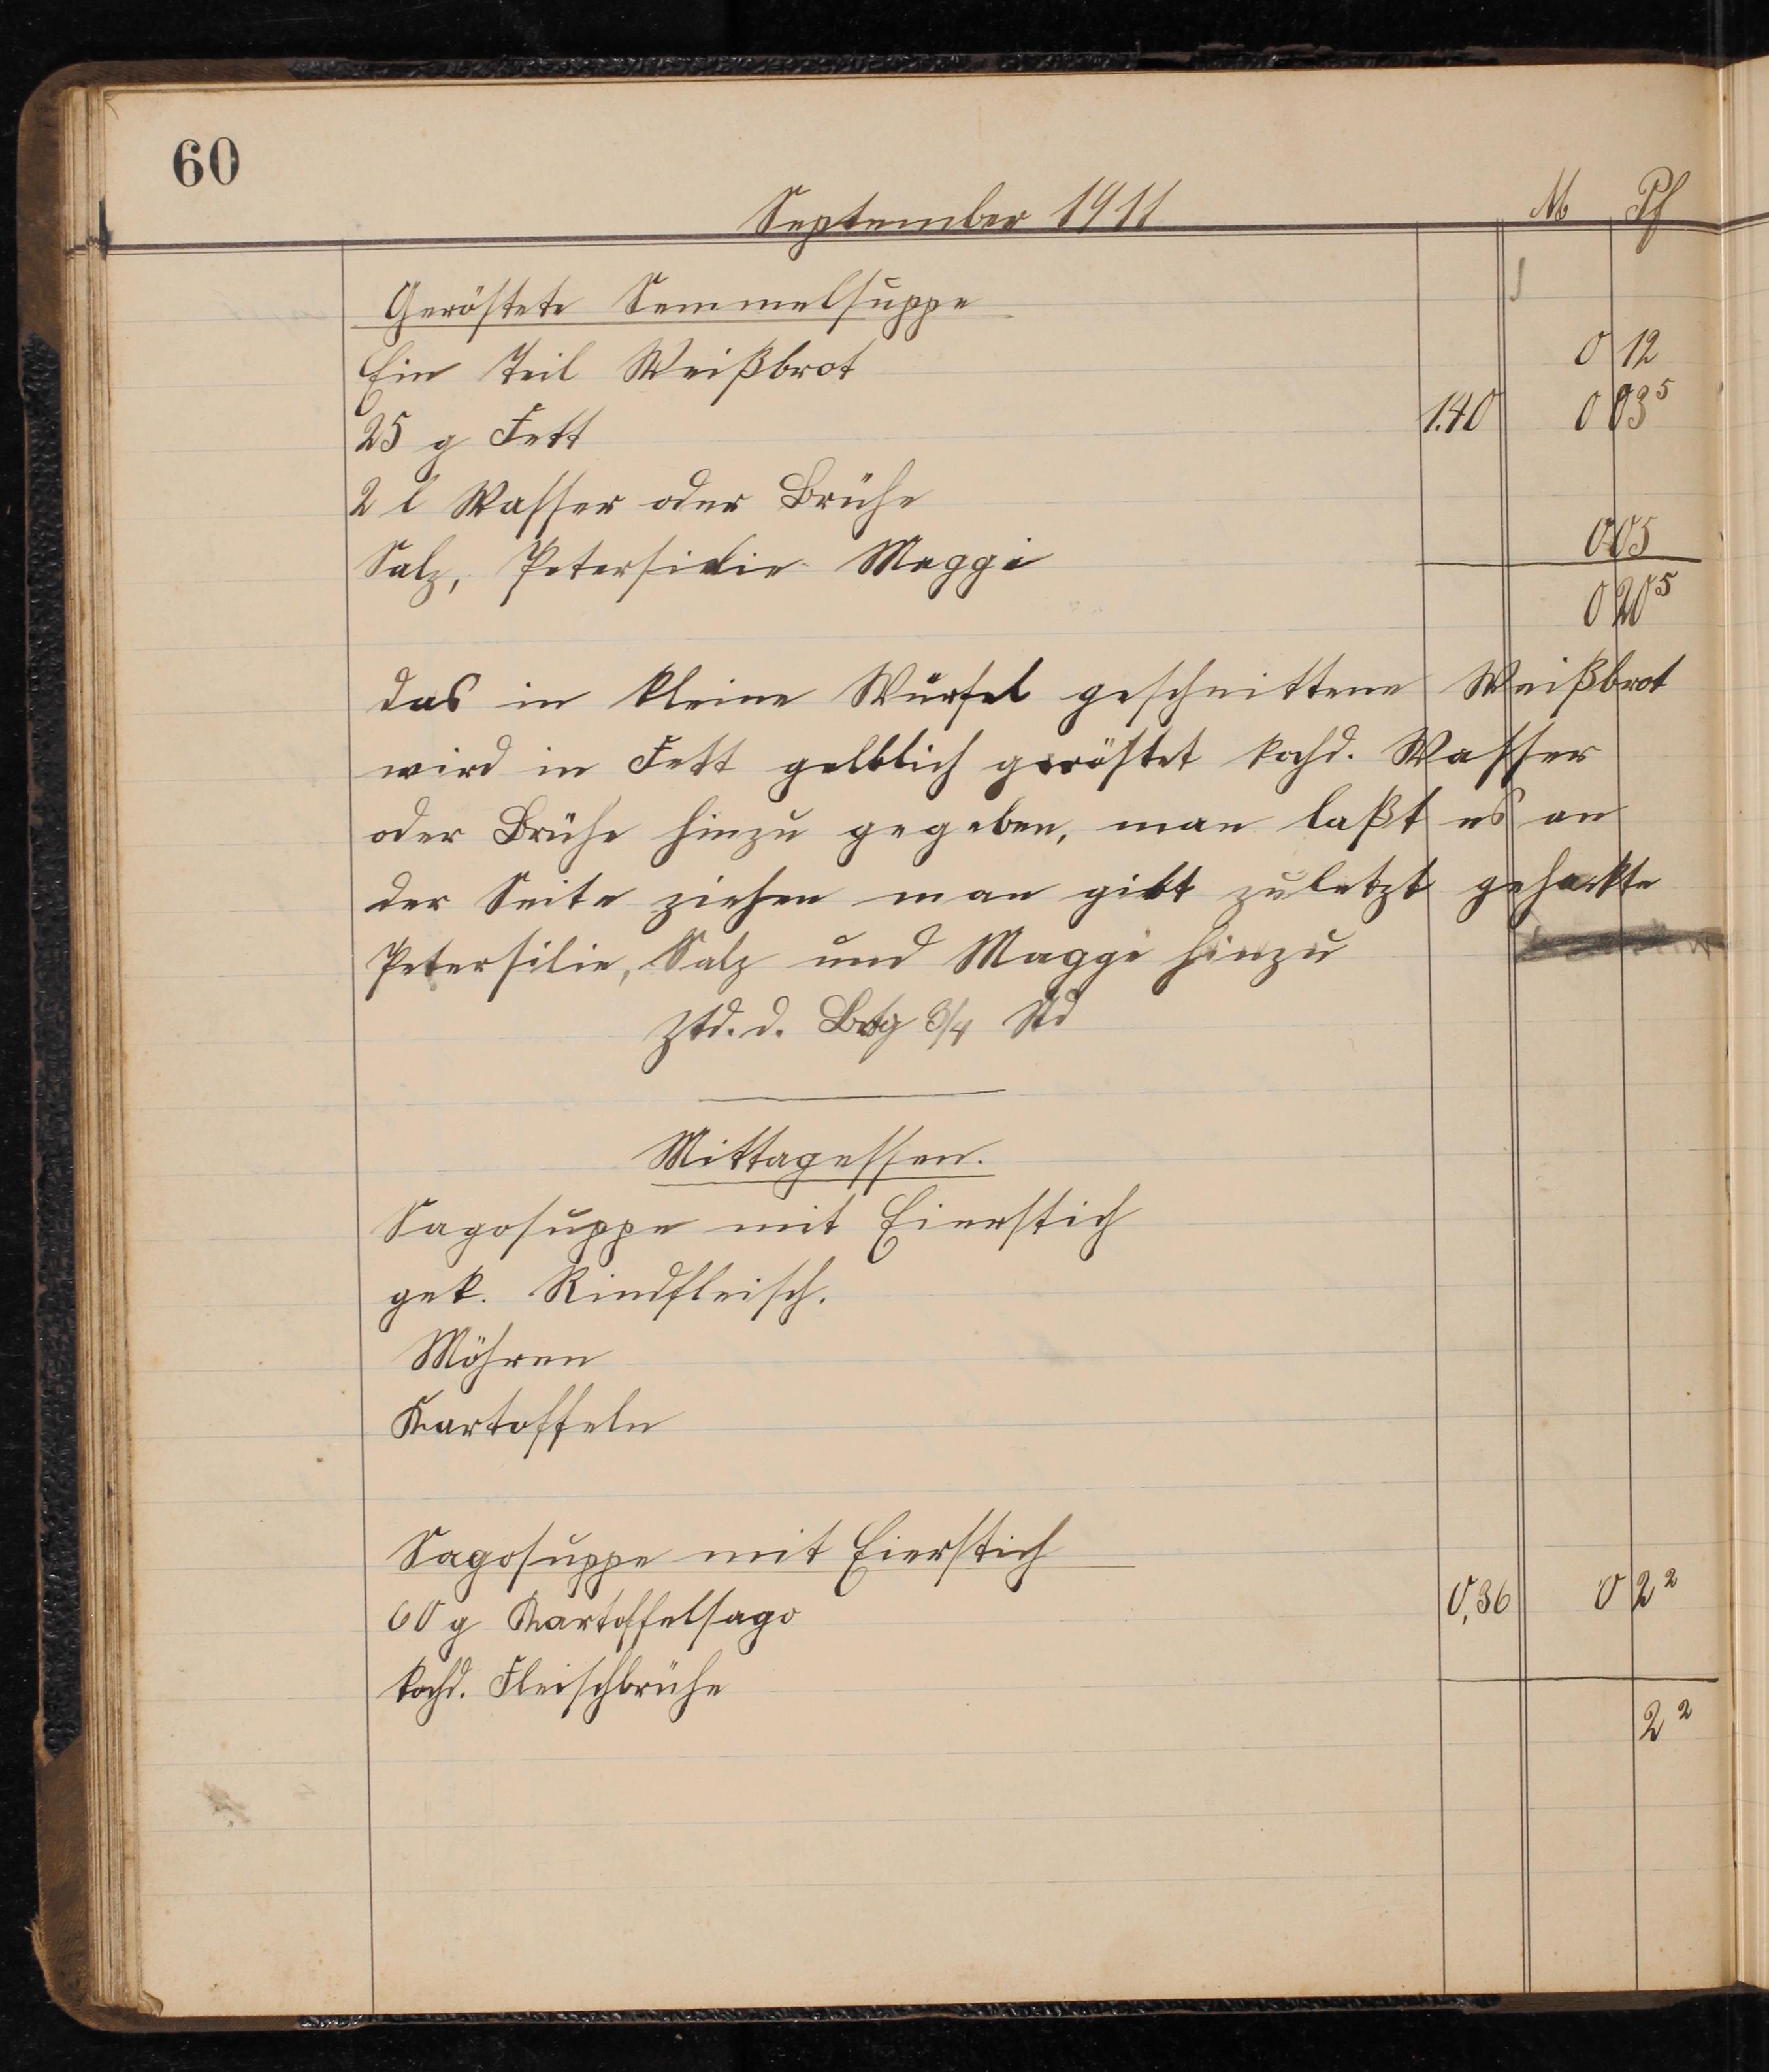 60
September 1911 M Pf
Geröstete Semmelsuppe
Ein Teil Weißbrot 0 12
25 g Fett 1.40 0 03⁵
2 l Wasser oder Brühe
Salz, Petersidie Maggi 0 05
0 20⁵
das in kleine Würfel geschnittene Weißbrot
wird in Fett gelblich geröstet kochd. Wasser
oder Brühe hinzu gegeben, man laßt es an
der Seite ziehen man gibt zuletzt gehackte
Petersilie, Salz und Maggi hinzu
Ztd. d. Brtg 3/4 Std
Mittagessen.
Sagosuppe mit Eierstich
gek. Rindfleisch.
Möhren
Kartoffeln
Sagosuppe mit Eierstich
60 g Kartoffelsago 0,36 0 2²
kochd. Fleischbrühe
2²